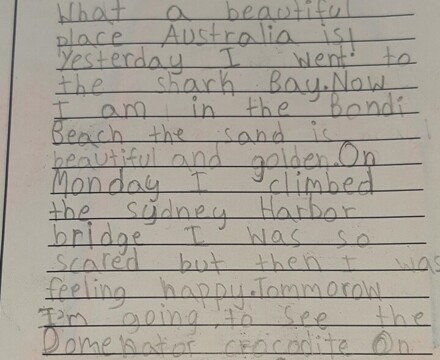 What a beautiful
place Australia is!
Yesterday I went to
the shark Bay.Now
I am in the Bondi
Beach the sand is
beautiful and golden.On
Monday I climbed
the sydney Harbor
bridge I was so
scared but then I was
feeling happy.Tommorow
I'm going to see the
Domenator crocodite On